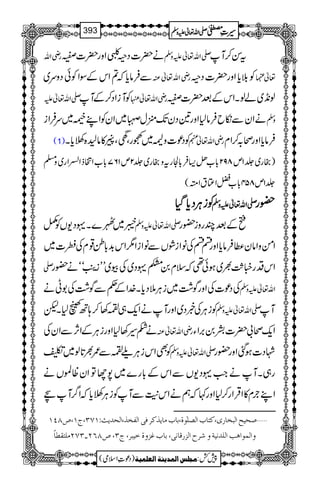 سیرتِ مصطفیٰ صلی اللہ تعالیٰ علیہ وسلم 393
یہ سن کر آپ صلی اللہ تعالیٰ علیہ وسلم نے حضرت دحیہ کلبی اور حضرت صفیہ رضی اللہ
تعالیٰ عنہما کو بلایا اور حضرت دحیہ رضی اللہ تعالیٰ عنہ سے فرمایا کہ تم اس کے سوا کوئی دوسری
لونڈی لے لو۔ اس کے بعد حضرت صفیہ رضی اللہ تعالیٰ عنہا کو آزاد کر کے آپ صلی اللہ تعالیٰ علیہ
وسلم نے ان سے نکاح فرما لیا اور تین دن تک منزل صہبا میں ان کو اپنے خیمہ میں سرفراز
فرمایا اور صحابہ کرام رضی اللہ تعالیٰ عنہم کو دعوت ولیمہ میں کھجور، گھی، پنیر کا مالیدہ کھلایا۔ (1)
(بخاری جلد ۱ ص ۲۹۸ باب ہل یسافر بالجاریہ و بخاری جلد ۲ ص ۷۶۱ باب اتخاذ السراری و مسلم
جلد ۱ ص ۴۵۸ باب فضل اعتاق امتہ)
حضور صلی اللہ تعالیٰ علیہ وسلم کو زہر دیا گیا
فتح کے بعد چند روز حضور صلی اللہ تعالیٰ علیہ وسلم خیبر میں ٹھہرے۔ یہودیوں کو مکمل
امن و امان عطا فرمایا اور قسم قسم کی نوازشوں سے نوازا مگر اس بد باطن قوم کی فطرت میں
اس قدر خباثت بھری ہوئی تھی کہ سلام بن مشکم یہودی کی بیوی ’’زینب‘‘ نے حضور صلی
اللہ تعالیٰ علیہ وسلم کی دعوت کی اور گوشت میں زہر ملا دیا۔ خدا کے حکم سے گوشت کی بوٹی نے
آپ صلی اللہ تعالیٰ علیہ وسلم کو زہر کی خبر دی اور آپ نے ایک ہی لقمہ کھا کر ہاتھ کھینچ لیا۔ لیکن
ایک صحابی حضرت بشر بن براء رضی اللہ تعالیٰ عنہ نے شکم سیر کھا لیا اور زہر کے اثر سے ان کی
شہادت ہو گئی اور حضور صلی اللہ تعالیٰ علیہ وسلم کو بھی اس زہریلے لقمہ سے عمر بھر تالو میں تکلیف
رہی۔ آپ نے جب یہودیوں سے اس کے بارے میں پوچھا تو ان ظالموں نے
اپنے جرم کا اقرار کر لیا اور کہا کہ ہم نے اس نیت سے آپ کو زہر کھلایا کہ اگر آپ سچے
1.....صحیح البخاری، کتاب الصلوۃ، باب مایذکر فی الفخذ، الحدیث: ۳۷۱، ج۱، ص۱۴۸
والمواهب اللدنیة و شرح الزرقانی، باب غزوة خیبر، ج۳، ص۲۶۸۔۲۷۳ ملتقطاً
پیش کش: مجلس المدینة العلمیة (دعوتِ اسلامی)